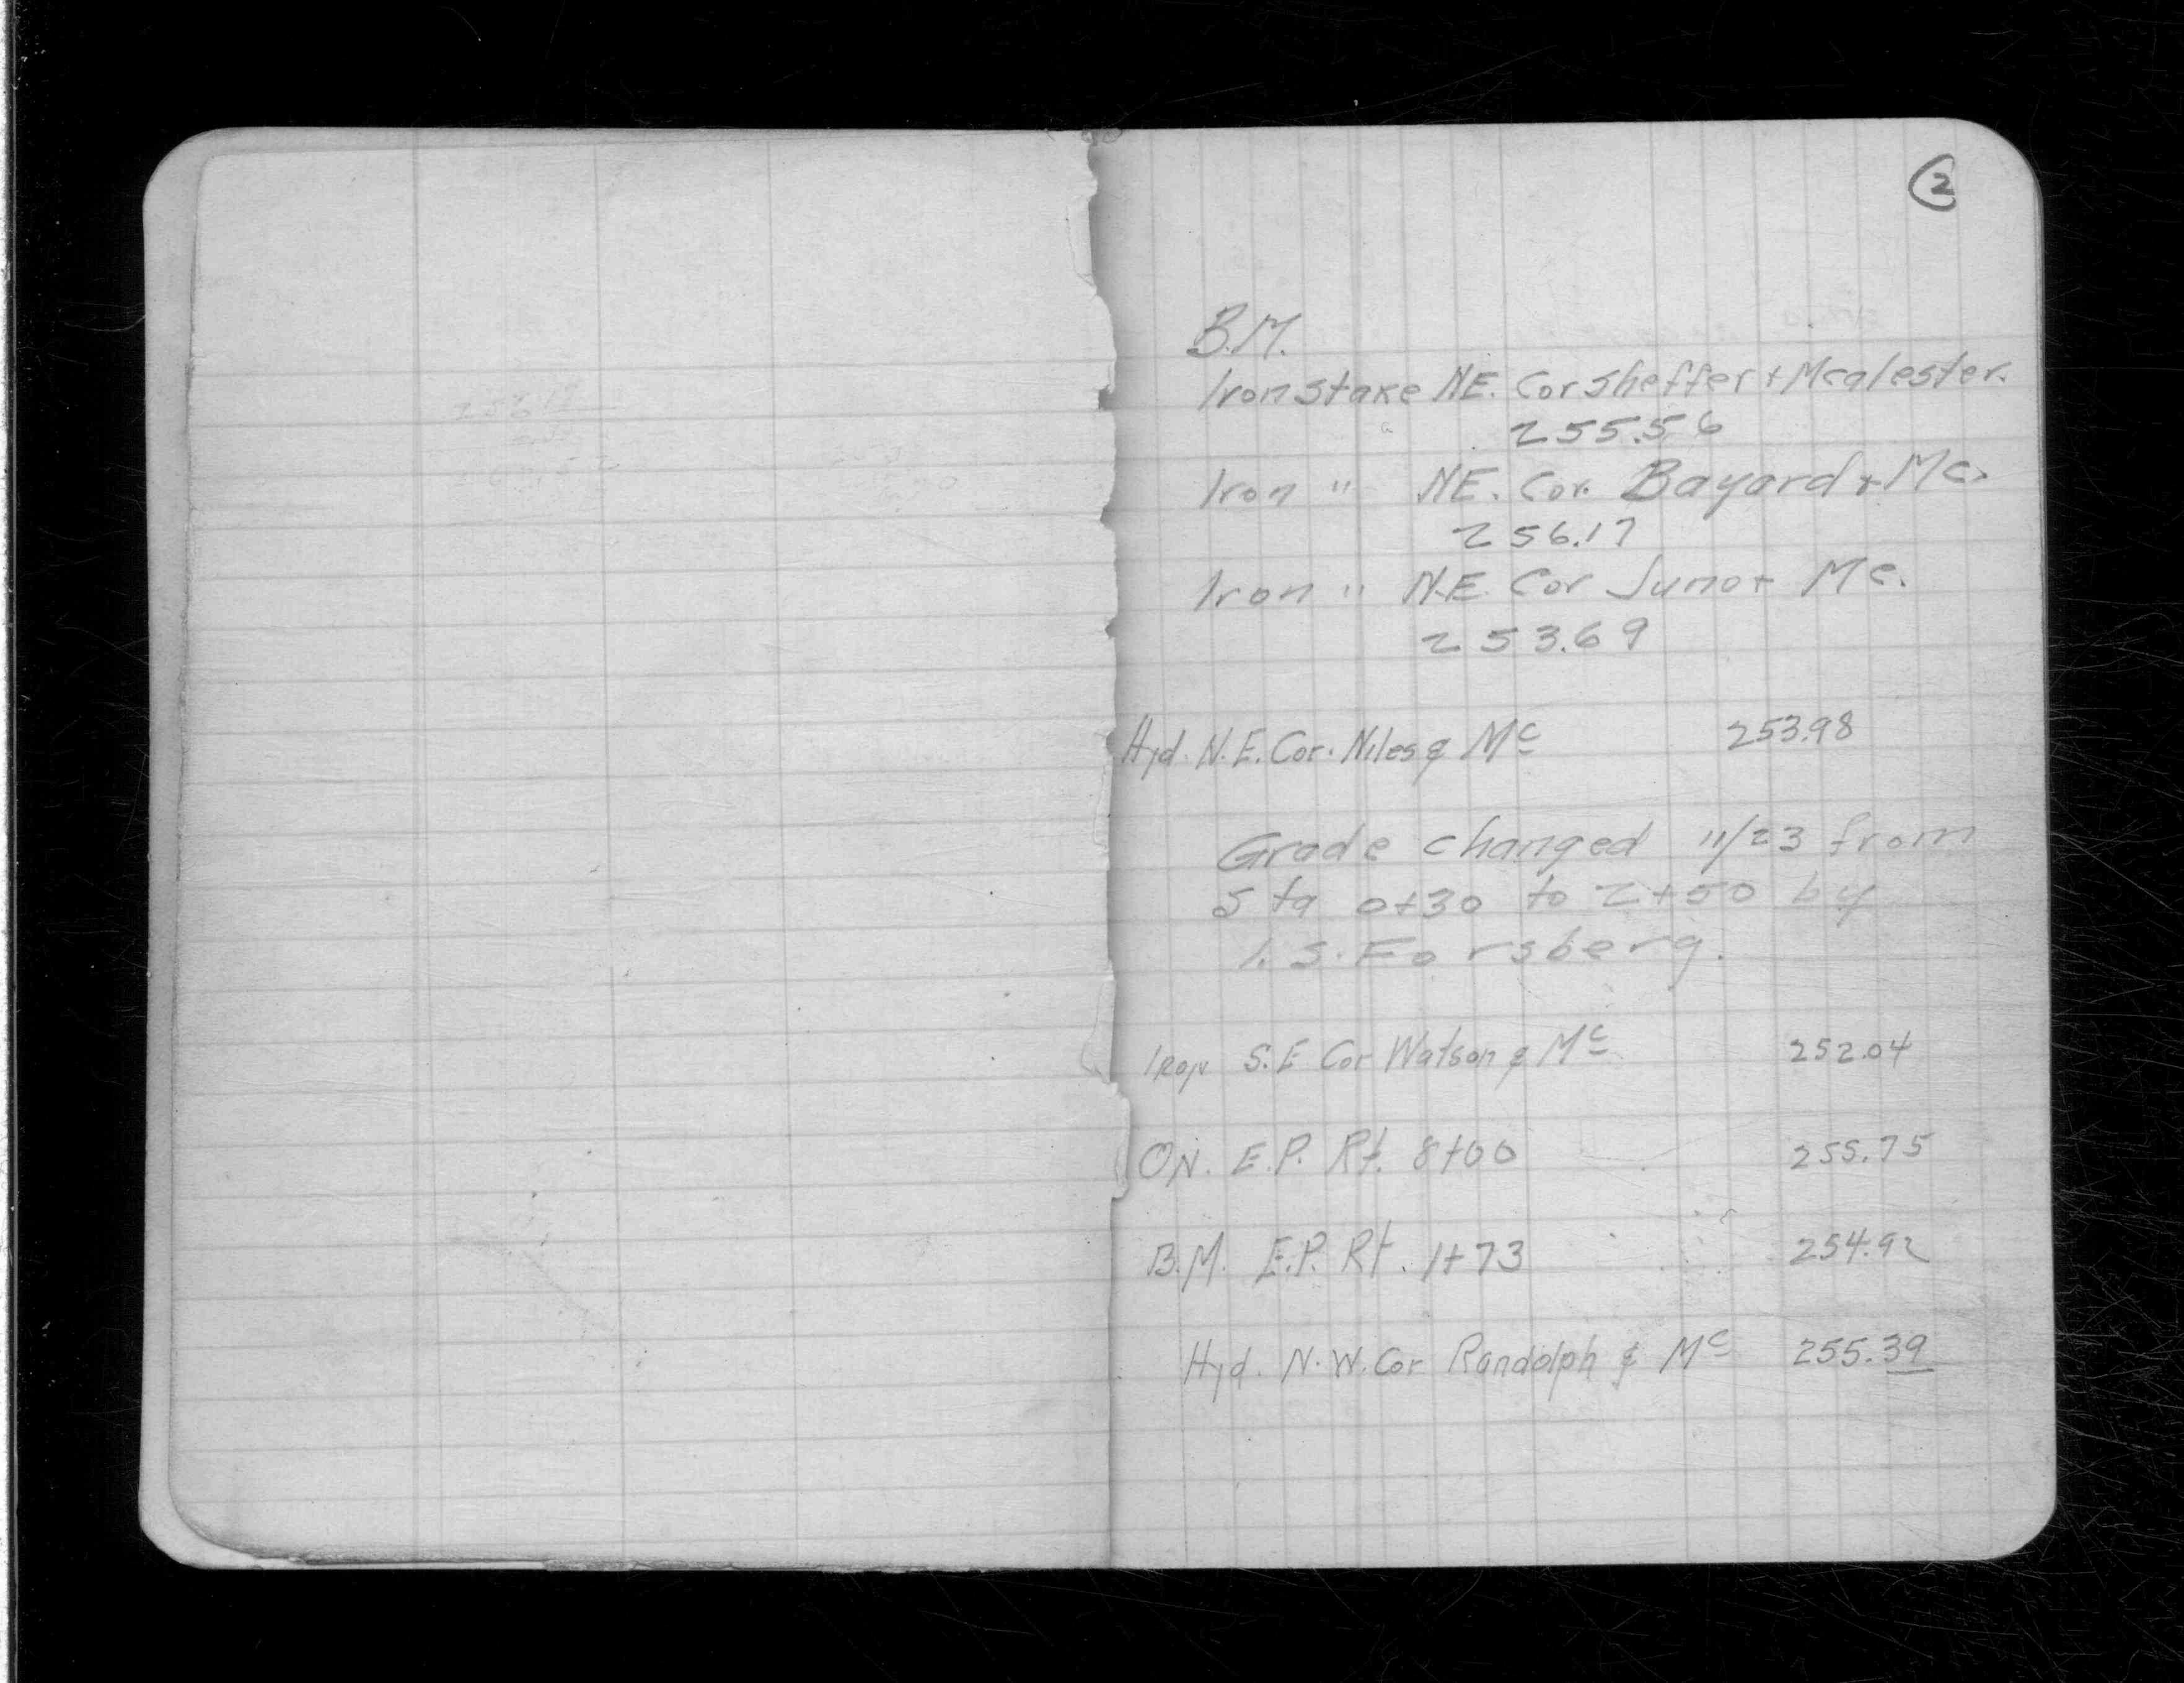 2
B.M.
Iron stake NE. Cor Sheffer + Mcalester.
255.56
Iron " NE. Cor. Bayard + Mc.
256.17
Iron " N.E. Cor Juno + Mc.
253.69
Hyd. N.E. Cor. Niles & Mc 253.98
Grade changed 11/23 from
Sta 0+30 to 2+50 by
I. S. Forsberg.
Iron S.E Cor Watson & Mc 252.04
ON. E.P. Rt. 8+00 255.75
B.M. E.P. Rt. 1+73 254.92
Hyd. N.W. Cor Randolph & Mc 255.39